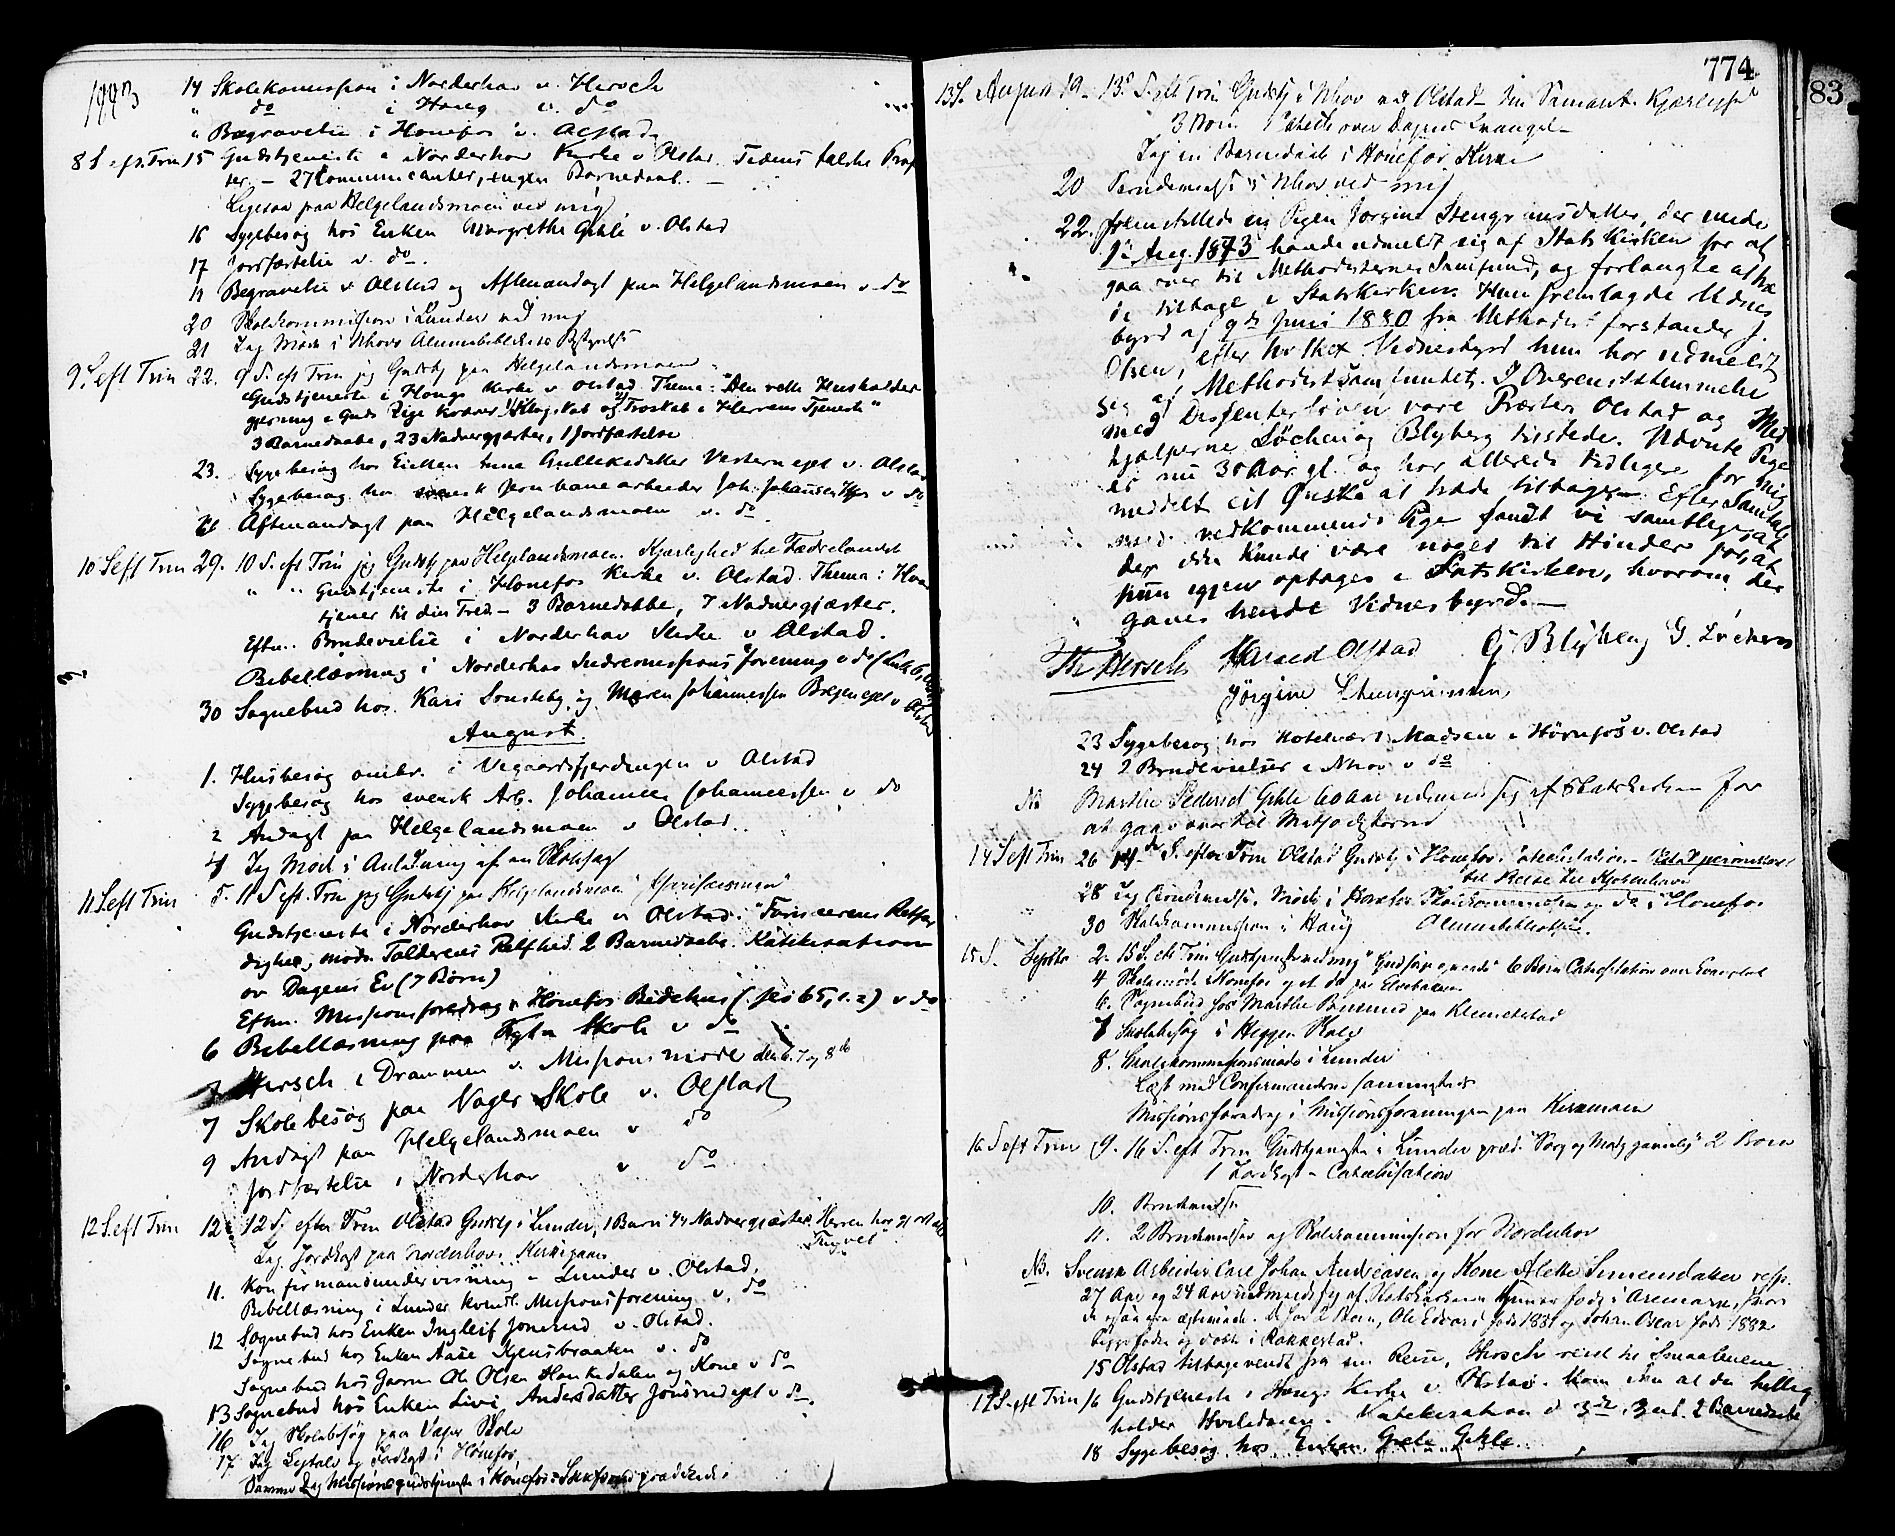 1883
14 Skolekommission i Norderhov v. Hersch
" do i Haug v. do
" Begravelse i Hønefos v. Olstad
8 S. eft. Trin 15 Gudstjeneste i Norderhov Kirke v Olstad. Tidens falske Profe
ter. – 27 Communicanter, ingen Barnedaab. –
Ligesaa paa Helgelandsmoen ved mig
16 Sygebesøg hos Enken Margrethe Gihle v. Olstad
17 Jordfæstelse v. do.
Begravelse v Olstad og Aftenandagt paa Helgelandsmoen v do
20 Skolekommission i Lunder ved mig
21 Jeg Møde i Nhovs Almuebibliotheks Bestyrelse
9. S. eft Trin 22. 9 S. eft Trin jeg Gudstj paa Helgelandsmoen
Gudstjeneste i Haugs Kirke v Olstad. Thema: "Den rette Husholder
gjerning i Guds Rige kræver 1) Klogskab og 2) Troskab i Herrens Tjeneste"
3 Barnedaabe, 23 Nadvergjæster, 1 Jordfæstelse
23. Sygebesøg hos Enken Anne Gulliksdatter Vesterneiet v. Olstad
Sygebesøg hos svensk Jernbanearbeider Joh. Johansen v do
Aftenandagt paa Helgelandsmoen v. do.
10 S eft Trin 29. 10 S. eft Trin jeg Gudstj paa Helgelandsmoen. Kjærlighed til Fædrelandet
" " Gudstjeneste i Hønefos Kirke v. Olstad. Thema: Hvad
tjener til din Fred – 3 Barnedaabe, 7 Nadvergjæster.
Eftm. Brudevielse i Norderhov Kirke v Olstad.
Bibellæsning i Norderhov Indremissions forening v do
30 Sognebud hos Kari Sonsteby og Maren Johannessen v Olstad
August.
1. Husbesøg omkr. i Vegaardsfjerdingen v Olstad
Sygebesøg hos svensk Arb. Johannes Johannessen v do
2 Andagt paa Helgelandsmoen v Olstad.
4 Jeg Møde i Anledning af en Skolesag
11 S eft Trin 5. 11 S eft. Trin jeg Gudstj paa Helgelandsmoen
Gudstjeneste i Norderhov Kirke v Olstad: "Farisæerens Retfær
dighed, mods. Tolderens Retfhed. 2 Barnedaabe. Katekisation
ov Dagens Ev (7 Børn)
Eftm. Missionsforedrag i Hønefos Bedehus (Jes 65, 1.2) v do
6 Bibellæsning paa Skole v do
7 Hersch i Drammen v. Missionsmøde den 6. 7 og 8de
7 Skolebesøg paa Vager Skole v. Olstad
9 Andagt paa Helgelandsmoen v do
Jordfæstelse i Norderhov v do
12 S. eft Trin 12 12 S. efter Trin Olstad Gudstj i Lunder, 1 Barn 44 Nadvergjæster
Jeg Jordkast paa Norderhovs Kirkegaard
11. Konfirmandundervisning i Lunder v. Olstad.
Bibellæsning i Lunder kvindl. Missionsforening v. do
12 Sognebud hos Enken Ingleif v. Olstad.
Sognebud hos Enken Aase Kjensbraaten v. do
Sognebud hos Gaarm Ole Olsen Hankedalen og Kone v do
13 Sognebud hos Enken Livi Andersdatter v do.
16 Jeg Skolebesøg paa Vager Skole
17. Jeg Ligtale og Jordkast i Hønefos
Samme Dag Missionsgudstjeneste i Hønefos
774
83
13 S. August 19 – 13de S. eft Trin Gudstj i Nhov ved Olstad –
3 Born Catech over Dagens Evangel –
Jeg en Barnedaab i Hønefos Kirke
20 Brudevielse i Nhov ved mig
22. Fremstillede sig Pigen Jørgine Stengrimsdatter, der under
9de Aug. 1873 havde udmeldt sig af Stats Kirken for at
gaa over til Methodisternes Samfund, og forlangte at træ
de tilbage i Statskirken. Hun fremlagde Vidnes
byrd af 9de Juni 1880 fra Methodistforstander J.
Olsen, efter hvilket Vidnesbyrd hun har udmeldt
sig af Methodistsamfundet. I Overensstemmelse
med Dissenterloven vare Præsten Olstad og Med
hjælperne Løchen og Blyberg tilstede. Udvnte Pige
er nu 30 Aar gl. og har allerede tidligere for mig
meddelt sit Ønske at træde tilbage. Efter Samtale
med vedkommende Pige fandt vi samtlige at
der ikke kunde være noget til Hinder for, at
hun igjen optages i Statskirken, hvorom der
gaves hende Vidnesbyrd. –
Th Hersch Harald Olstad G Blyberg G. Løchen
Jørgine Stengrimsen
23 Sygebesøg hos Hotelvært Madsen i Hønefos v. Olstad
24 2 Brudevielser i Nhov v do
Nb Marthe Pedersd Gihle 60 Aar udmeldt sig af Statskirken for
at gaa over til Methodisterne
14 S eft Trin 26 14de S. efter Trin Olstad Gudstj i Hønefos. Catechisation –
til Reise til Kjøbenhavn
28 Jeg Brudevielse, Møde i Norderhov Skolekommission og do i Hønefos
30 Skolekommission i Haug Almuebibliothek.
15 S. Septbr 2. 15 S. eft Trin Gudstjeneste ved mig 6 Børn Catechisation over Evangeliet
4 Skolemøde i Hønefos
6. Sognebud hos Marthe paa Klemetstad
7 Skolebesøg i Heggen Skole
8. Skolekommissionsmøde i Lunder
Læst med Confirmanderne sammesteds
Missionsforedrag i Missionsforeningen paa Kirkemoen
16 S eft Trin 9. 16 S. eft Trin Gudstjeneste i Lunder præd. 2 Born
1 Jordkast – Catechisation
10. Brudevielse
11. 2 Brudevielser og Skolekommission for Norderhov
NB. Svensk Arbeider Carl Johan Andreasen og Kone Alette Simensdatter resp.
27 Aar og 24 Aar udmeldt sig af Statskirken Konen født i Aremark, hvor
de ogsaa ere ægteviede. De har 2 Børn, Ole Edvard født 1881 og Johan Oscar født 1882
begge fødte og døbte i Rakkestad.
15 Olstad tilbagevendt fra sin Reise, Hersch reist til Smaalenene
17 S. eft Trin 16 Gudstjeneste i Haugs Kirke v. Olstad. Kom ihu at du hellig
holder Hviledagen. Katekisation o 3die Bud. 2 Barnedaabe
18 Sygebesøg hos Enken Grete Gihle.